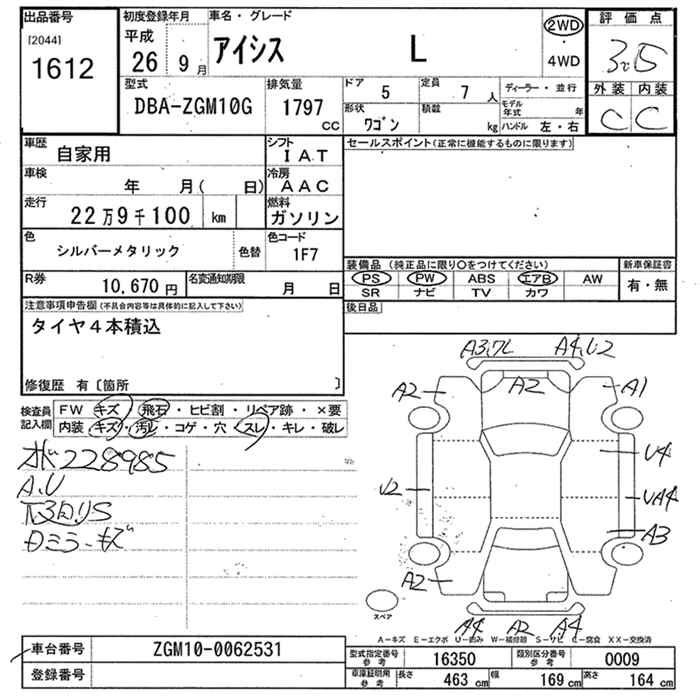 出品番号
[2044]
1612
初度登録年月
平成
26 9 月
車名・グレード
アイシス L
2WD
4WD
評価点
3.5
外装 内装
C C
型式
DBA-ZGM10G
排気量
1797 CC
ドア
5
定員
7 人
ディーラー・並行
モデル年式 年
形状
ワゴン
積載
kg
ハンドル 左・右
車歴
自家用
シフト
IAT
車検
年 月( 日)
冷房
AAC
走行
22万9千100 km
燃料
ガソリン
色
シルバーメタリック
色替
色コード
1F7
R券
10,670 円
名変通知期限
月 日
セールスポイント(正常に機能するものに限ります)
装備品(純正品に限り○をつけてください)
新車保証書
PS PW ABS エアB AW
SR ナビ TV カワ
有・無
後日品
注意事項申告欄(不具合内容等は具体的に記入して下さい)
タイヤ4本積込
修復歴 有〔箇所 〕
検査員記入欄
FW キズ・飛石・ヒビ割・リペア跡・×要
内装 キズ・汚レ・コゲ・穴・スレ・キレ・破レ
228985
A.U
ミラーキズ
A2 A2 A1
U4
U2
UA4
A3
A2
A4 A2 A4
スペア
A-キズ E-エクボ U-凹み W-補修跡 S-サビ C-腐食 XX-交換済
車台番号
ZGM10-0062531
登録番号
型式指定番号
参考
16350
類別区分番号
参考
0009
車庫証明用
参考
長さ
463 cm
幅
169 cm
高さ
164 cm